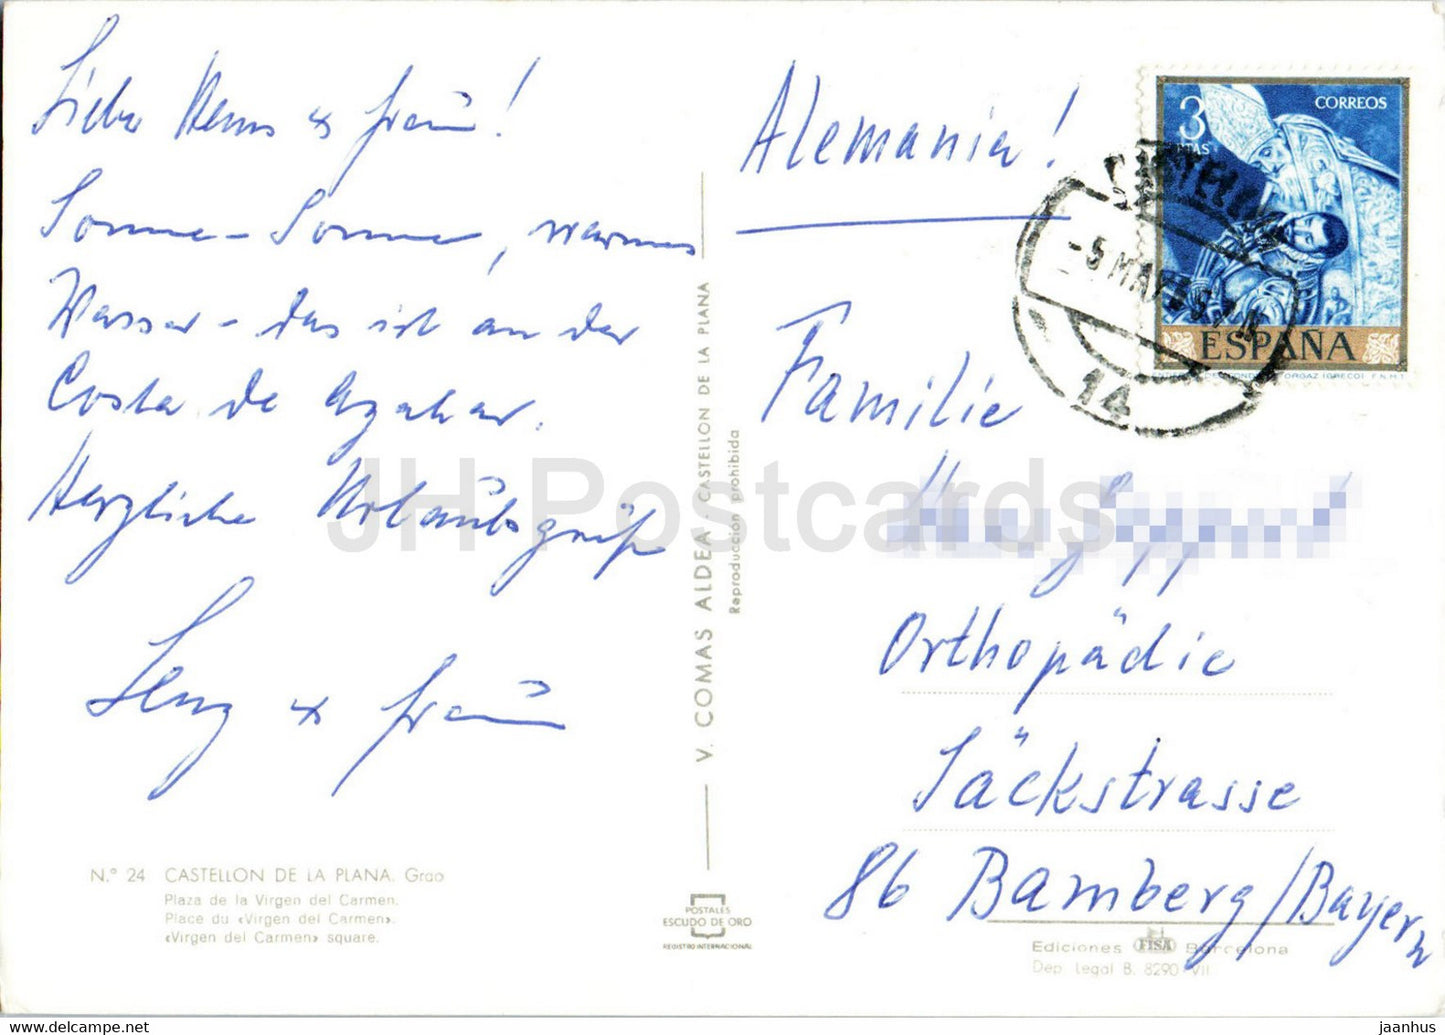 Liebe Hanns & Frau!
Sonne - Sonne, warmes
Wasser - das ist an der
Costa de Azahar.
Herzliche Urlaubsgrüße
Lenz & Frau
Nº 24 CASTELLON DE LA PLANA. Grao
Plaza de la Virgen del Carmen.
Place du «Virgen del Carmen».
«Virgen del Carmen» square.
V. COMAS ALDEA - CASTELLON DE LA PLANA
Reproducción prohibida
POSTALES
ESCUDO DE ORO
REGISTRO INTERNACIONAL
Alemania!
3
PTAS
CORREOS
ESPAÑA
CASTELLON
-5 MAY
14
Familie
Orthopädie
Säckstrasse
86 Bamberg/Bayern
Ediciones FISA Barcelona
Dep. Legal B. 8290-VII
JH Postcards
jaanhus